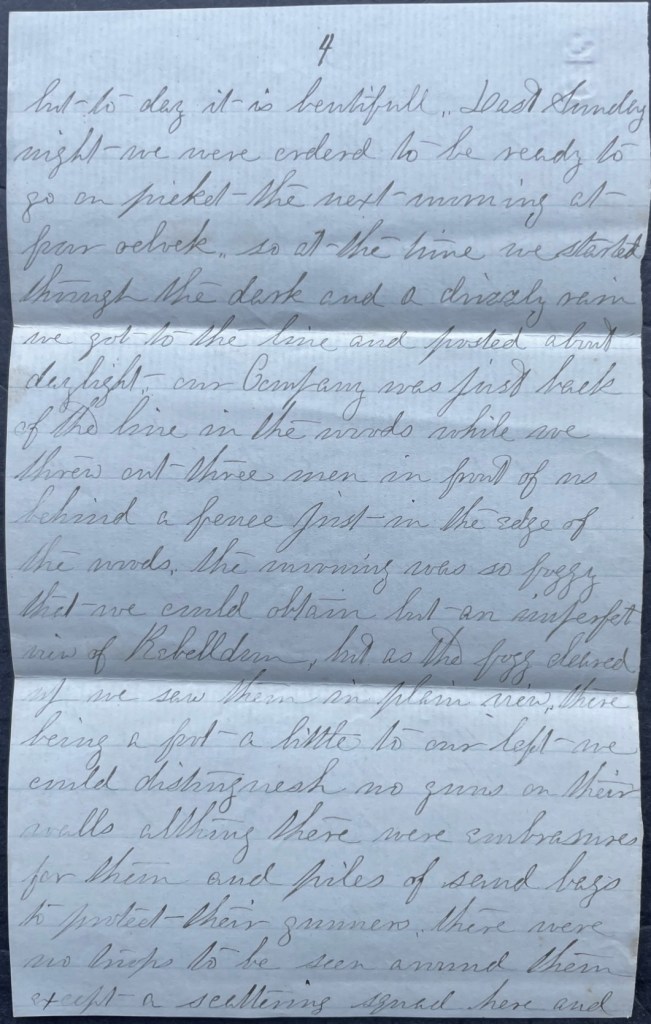 4
but to day it is beutifull,, Last Sunday
night we were orderd to be ready to
go on picket the next morning at
four oclock,, so at the time we started
through the dark and a drizzly rain
we got to the line and posted about
daylight. our Company was just back
of the line in the woods while we
threw out three men in front of us
behind a fence just in the edge of
the woods. the morning was so foggy
that we could obtain but an imperfet
view of Rebelldum, but as the fogg cleared
up we saw them in plain view, there
being a fort a little to our left we
could distinguesh no guns on their
walls althoug there were embrasures
for them and piles of sand bags
to protect their gunners, there were
no troops to be seen around them
except a scattering squad here and